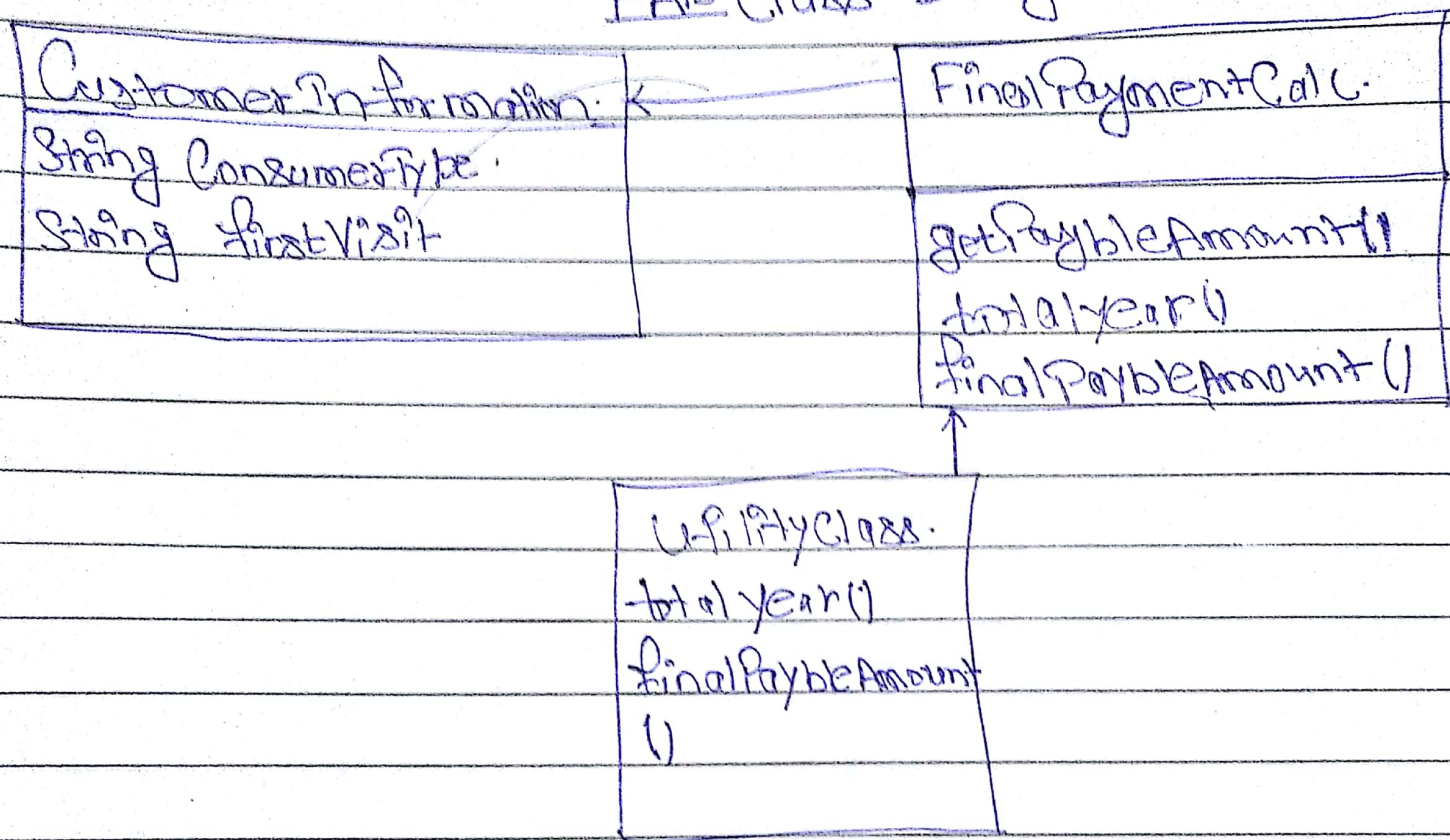 Class
CustomerInformation.
String ConsumerType.
String firstVisit
FinalPaymentCalc.
getPaybleAmount()
totalyear()
finalPaybleAmount()
UtilityClass.
total year()
finalPaybleAmount
()